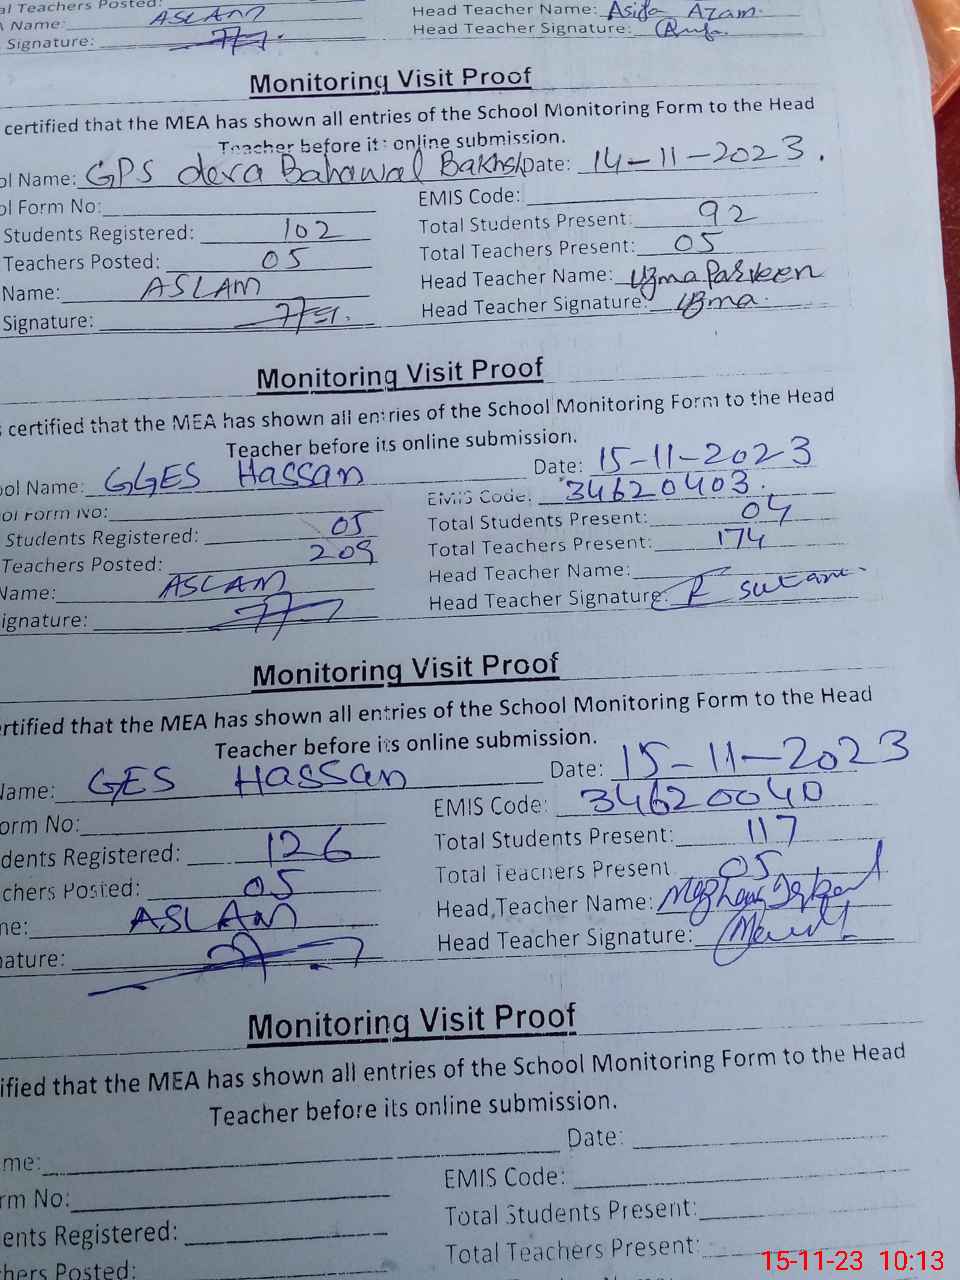 al Teachers Posted: Head Teacher Name: Asifa Azam.
A Name: ASLAM Head Teacher Signature:
Signature:
Monitoring Visit Proof
certified that the MEA has shown all entries of the School Monitoring Form to the Head
Teacher before its online submission.
ol Name: GPS dera Bahawal Bakhsh Date: 14-11-2023.
ol Form No: EMIS Code:
Students Registered: 102 Total Students Present: 92
Teachers Posted: 05 Total Teachers Present: 05
Name: ASLAM Head Teacher Name: Uzma Parveen
Signature: Head Teacher Signature: Uzma.
Monitoring Visit Proof
s certified that the MEA has shown all entries of the School Monitoring Form to the Head
Teacher before its online submission.
ool Name: GGES Hassan Date: 15-11-2023
ol Form No: EMIS Code: 34620403.
Students Registered: 05 Total Students Present: 04
Teachers Posted: 209 Total Teachers Present: 174
Name: ASLAM Head Teacher Name:
ignature: Head Teacher Signature:
Monitoring Visit Proof
ertified that the MEA has shown all entries of the School Monitoring Form to the Head
Teacher before its online submission.
Name: GES Hassan Date: 15-11-2023
orm No: EMIS Code: 34620040
dents Registered: 126 Total Students Present: 117
chers Posted: 05 Total Teachers Present 05
ne: ASLAM Head Teacher Name:
nature: Head Teacher Signature:
Monitoring Visit Proof
ified that the MEA has shown all entries of the School Monitoring Form to the Head
Teacher before its online submission.
me: Date:
rm No: EMIS Code:
ents Registered: Total Students Present:
hers Posted: Total Teachers Present:
15-11-23 10:13